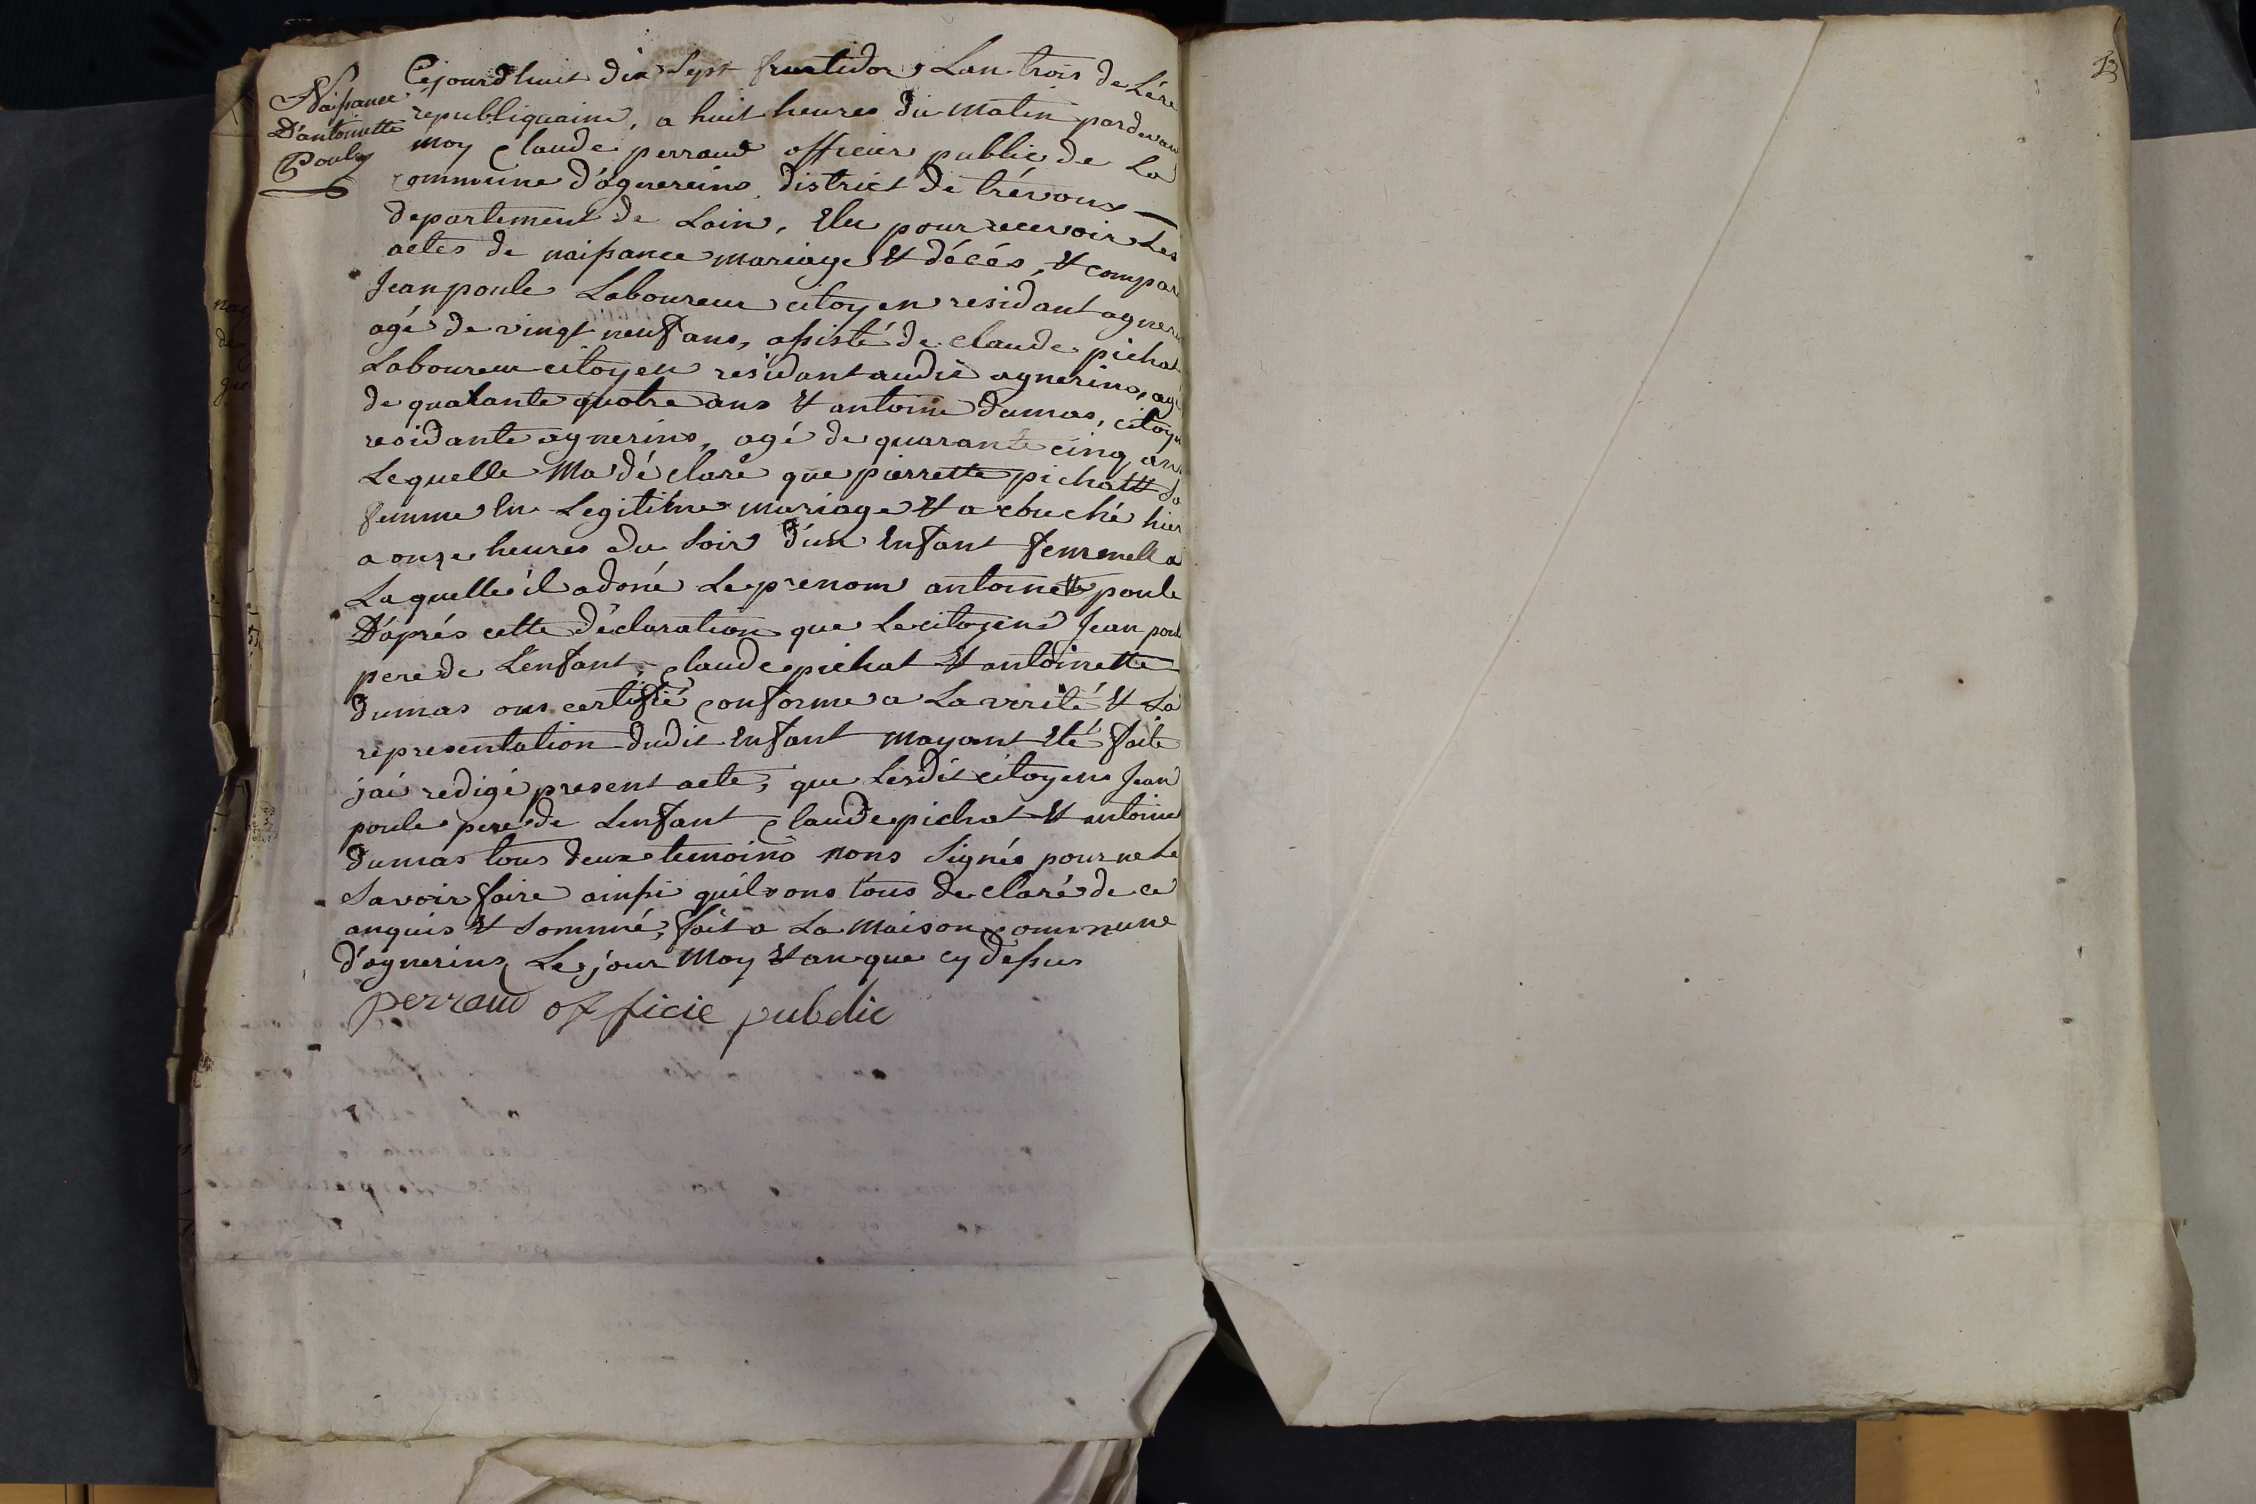 Naissance
D'antoinette
Poule
Cejourdhuit dix Sept fructidor Lan trois de Lére
republiquaine, a huit heures du Matin pardevant
Moy Claude perraud officier public de La
commune d'agnereins district de trévoux
departement de Lain, Elu pour recevoir Les
actes de naissance mariage Et décés, Et compar
Jean poule Laboureur citoyen residant agner
agé de vingt neuf ans, assisté de Claude pichat
Laboureur citoyen residant audit agnerins, agé
de qualante quatre ans Et antoine dumas, citoyen
residante agnerins, agé de quarante cinq ans
Lequelle Ma déclaré que pierrette pichatt Sa
femme En Legitime mariage Et a couché hier
a onze heures du Soir d'un Enfant femmell a
Laquelle il a doné Le prenom antoinette poule
D'aprés cette déclaration que Le citoyens Jean poul
pere de L'enfant, Claude pichat Et antoinette
dumas ons certifié conforme a La verité Et La
representation dudit Enfant mayant Eté faite
j'ai redigé present acte, que Lesdit citoyens Jean
poule pere de Lenfant Claude pichat Et antoine
dumas tous deux temoins nons Signés pour ne Le
Savoir faire ainsi quil ons tous de claré de ce
anquis Et Sommé, fait a La Maison commune
d'agnerins Le jour Moy Et an que cy dessus
perraud officie public